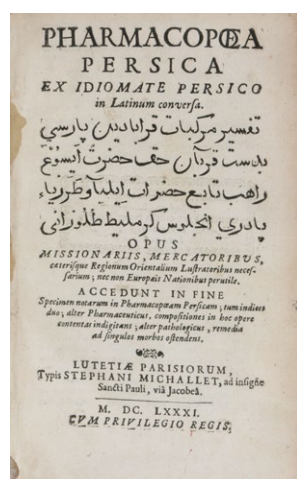 PHARMACOPŒA
PERSICA
EX IDIOMATE PERSICO
in Latinum conversa.
تفسير مركبات قرابادين پارسي
بدست قربان حقف حضرت ايسوع
راهب تابع حضرات ايليا و طرزياء
پادري انجلوس كرمليط طلوزاني
OPUS
MISSIONARIIS, MERCATORIBVS,
cæterisque Regionum Orientalium Lustratoribus neces-
sarium; nec non Europæis Nationibus perutile.
ACCEDUNT IN FINE
Specimen notarum in Pharmacopœam Persicam; tum indices
duo; alter Pharmaceuticus, compositiones in hoc opere
contentas indigitans; alter pathologicus, remedia
ad singulos morbos ostendens.
LUTETIÆ PARISIORUM,
Typis STEPHANI MICHALLET, ad insigne
Sancti Pauli, viâ Jacobeâ.
M. DC. LXXXI.
CVM PRIVILEGIO REGIS,